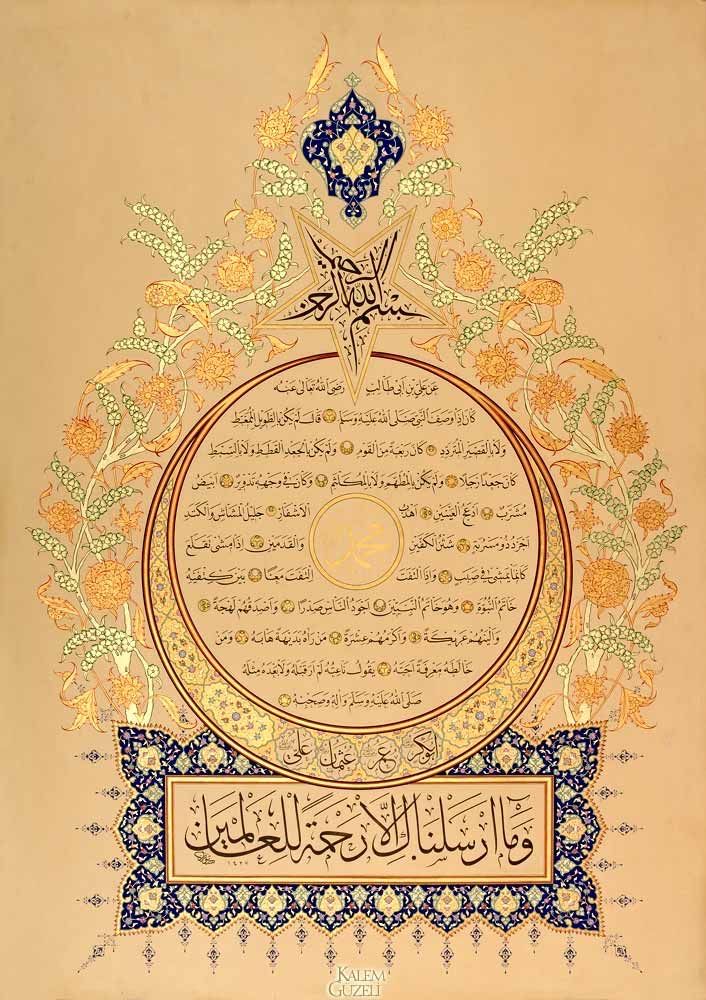 بسم الله الرحمن الرحيم
عَنْ عَلِيّ بْنِ اَبِى طَالِبٍ رَضِىَ اللهُ تَعَالَى عَنْهُ
كَانَ اِذَا وَصَفَ النَّبِىَّ صَلَّى اللهُ عَلَيْهِ وَسَلَّمَ قَالَ لَمْ يَكُنْ بِالطَّوِيلِ الْمُمَغَّطِ
وَلَا بِالْقَصِيرِ الْمُتَرَدِّدِ كَانَ رَبْعَةً مِنَ الْقَوْمِ وَلَمْ يَكُنْ بِالْجَعْدِ الْقَطَطِ وَلَا بِالسَّبِطِ
كَانَ جَعْدًا رَجِلًا وَلَمْ يَكُنْ بِالْمُطَهَّمِ وَلَا بِالْمُكَلْثَمِ وَكَانَ فِى وَجْهِهِ تَدْوِيرٌ اَبْيَضُ
مُشْرَبٌ اَدْعَجُ الْعَيْنَيْنِ اَهْدَبُ الْاَشْفَارِ جَلِيلُ الْمُشَاشِ وَالْكَتَدِ
محمد
اَجْرَدُ ذُو مَسْرُبَةٍ شَثْنُ الْكَفَّيْنِ وَالْقَدَمَيْنِ اِذَا مَشَى تَقَلَّعَ
كَاَنَّمَا يَمْشِى فِى صَبَبٍ وَاِذَا الْتَفَتَ الْتَفَتَ مَعًا بَيْنَ كَتِفَيْهِ
خَاتَمُ النُّبُوَّةِ وَهُوَ خَاتَمُ النَّبِيِّينَ اَجْوَدُ النَّاسِ صَدْرًا وَاَصْدَقُهُمْ لَهْجَةً
وَاَلْيَنُهُمْ عَرِيكَةً وَاَكْرَمُهُمْ عِشْرَةً مَنْ رَاٰهُ بَدِيهَةً هَابَهُ وَمَنْ
خَالَطَهُ مَعْرِفَةً اَحَبَّهُ يَقُولُ نَاعِتُهُ لَمْ اَرَ قَبْلَهُ وَلَا بَعْدَهُ مِثْلَهُ
صَلَّى اللهُ عَلَيْهِ وَسَلَّمَ وَاٰلِهِ وَصَحْبِهِ
ابوبكر عمر عثمان علي
وَمَا اَرْسَلْنَاكَ اِلَّا رَحْمَةً لِلْعَالَمِينَ
KALEM
GUZELİ